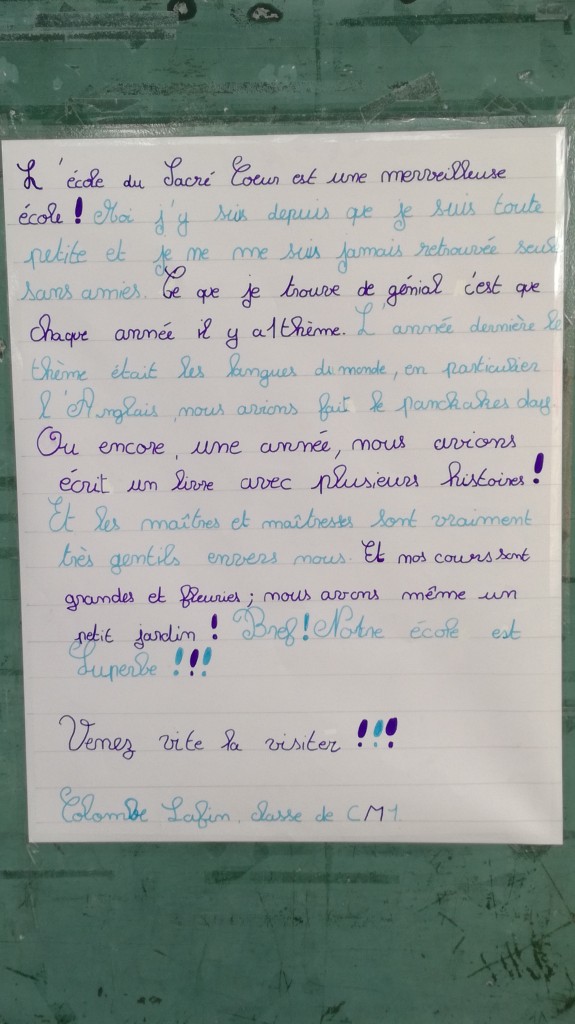 L'école du Sacré Coeur est une merveilleuse
école ! Moi j'y suis depuis que je suis toute
petite et je me me suis jamais retrouvée seule
sans amies. Ce que je trouve de génial c'est que
chaque année il y a 1 thème. L'année dernière le
thème était les langues du monde, en particulier
l'Anglais, nous avions fait le panchakes day
Ou encore, une année, nous avions
écrit un livre avec plusieurs histoires !
Et les maîtres et maîtresses sont vraiment
très gentils envers nous. Et nos cours sont
grandes et fleuries ; nous avons même un
petit jardin ! Bref ! Notre école est
Superbe !!!
Venez vite la visiter !!!
Colombe Lafin, classe de CM1.